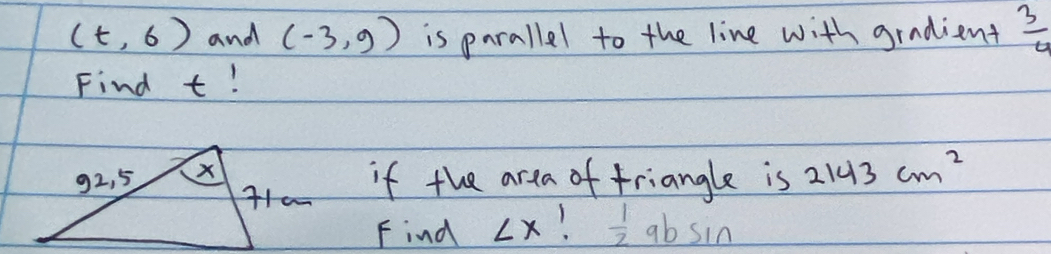 (t, 6) and (-3, 9) is parallel to the line with gradient 3/4
Find t!
92,5
x
71 cm
if the area of triangle is 2143 cm²
Find ∠x! 1/2 ab sin